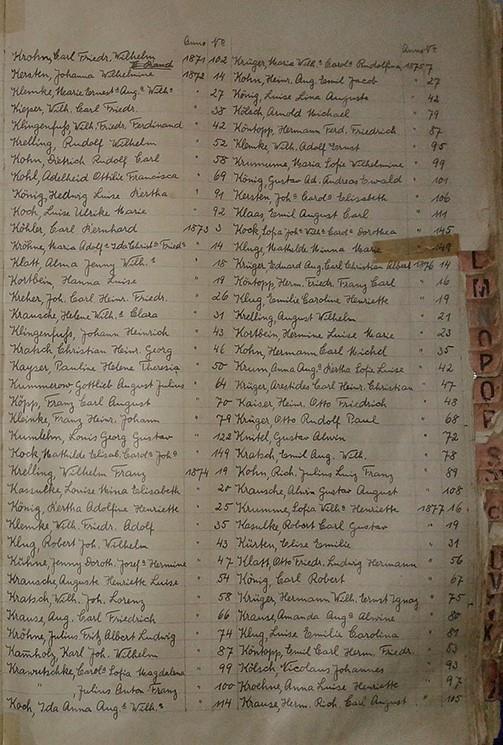 Anno No
Krohn, Carl Friedr. Wilhelm 1871 102
Kersten, Johanna Wilhelmine 1872 14
Klemke, Marie Ernest. Aug. Wilh. " 27
Kieper, Wilh. Carl Friedr. " 38
Klingenfuß, Wilh. Friedr. Ferdinand " 42
Krelling, Rudolf Wilhelm " 52
Kohn, Dietrich Rudolf Carl " 58
Kohl, Adelheid Ottilie Francisca " 69
König, Hedwig Luise Bertha " 91
Koch, Luise Ulrike Marie " 92
Köhler, Carl Bernhard 1873 3
Kröhne, Maria Adolf. Ida Christ. Fried. " 14
Klatt, Alma Jenny Wilh. " 18
Kortbein, Hanna Luise " 19
Kreher, Joh. Carl Heinr. Friedr. " 26
Krausche Helene Wilh. Clara " 31
Klingenfuß, Johann Heinrich " 43
Kratsch, Christian Heinr. Georg " 46
Kayser, Pauline Helene Theresia " 50
Kummerow Gottlieb August Julius " 64
Köpp, Franz Carl August " 70
Kleinke, Franz Heinr. Johann " 79
Louis Georg Gustav " 122
Kock, Mathilde Elisab. Carol. Joh. " 149
Krelling, Wilhelm Franz 1874 19
Kasulke, Louise Mina Elisabeth " 20
König, Bertha Adolfine Henriette " 25
Klemke Wilh. Friedr. Adolf " 35
Klug, Robert Joh. Wilhelm " 43
Kühne, Jenny Doroth. Josef. Hermine " 47
Krausche, Auguste Henriette Luise " 54
Kratsch, Wilh. Joh. Lorenz " 58
Krause, Aug. Carl Friedrich " 66
Kröhne, Julius Fritz Albert Ludwig " 74
Kamholz, Karl Joh. Wilhelm " 87
Krawutschke, Carol. Sofia Magdalena " 99
" , Julius Anton Franz " 100
Koch, Ida Anna Aug. Wilh. " 114
Anno No
Krüger, Maria Wilh. Carol. Rudolfine 1875 7
Kohn, Heinr. Aug. Emil Jacob " 27
König, Luise Lina Auguste " 42
Kölsch, Arnold Michael " 79
Köntopp, Hermann Ferd. Friedrich " 87
Klemke, Wilh. Adolf Ernst " 95
Krumume, Maria Sofie Wilhelmine " 99
König, Gustav Ad. Andreas Ewald " 101
Kersten Joh. Carol. Elisabeth " 106
Klaas, Emil August Carl " 111
Kock, Sofia Joh. Wilh. Carol. Dorothea " 145
Kluge, Mathilde Minna Marie " 149
Krüger Eduard Aug. Carl Christian Albert 1876 14
Köntopp, Herm. Friedr. Franz Carl " 16
Klug, Emilie Caroline Henriette " 19
Krelling, August Wilhelm " 21
Kortbein Hermine Luise Marie " 23
Kohn, Hermann Carl Michel " 35
Krum, Anna Aug. Bertha Sofie Luise " 42
Krüger, Arestides Carl Heinr. Christian " 47
Kaiser, Heinr. Otto Friedrich " 48
Krüger, Otto Rudolf Paul " 68
Knitel, Gustav Alwin " 72
Kratsch, Emil Aug. Wilh. " 78
Kohn, Rich. Julius Luiz Franz " 89
Krausche, Alwin Gustav August " 108
Krumme, Sofia Wilh. Henriette 1877 16
Kasulke, Robert Carl Gustav " 19
Kürten, Elise Emilie " 31
Klatt, Otto Friedr. Ludwig Hermann " 56
König, Carl Robert " 67
Krüger, Hermann Wilh. Ernst Ignaz " 75
Krause, Amanda Aug. Alwine " 80
Klug, Luise Emilie Carolina " 81
Köntopp, Emil Carl Herm. Friedr. " 83
Kölsch, Nicolaus Johannes " 93
Kroehne, Anna Luise Henriette " 97
Krause, Herm. Rich. Carl August " 105
M
O
P
Q